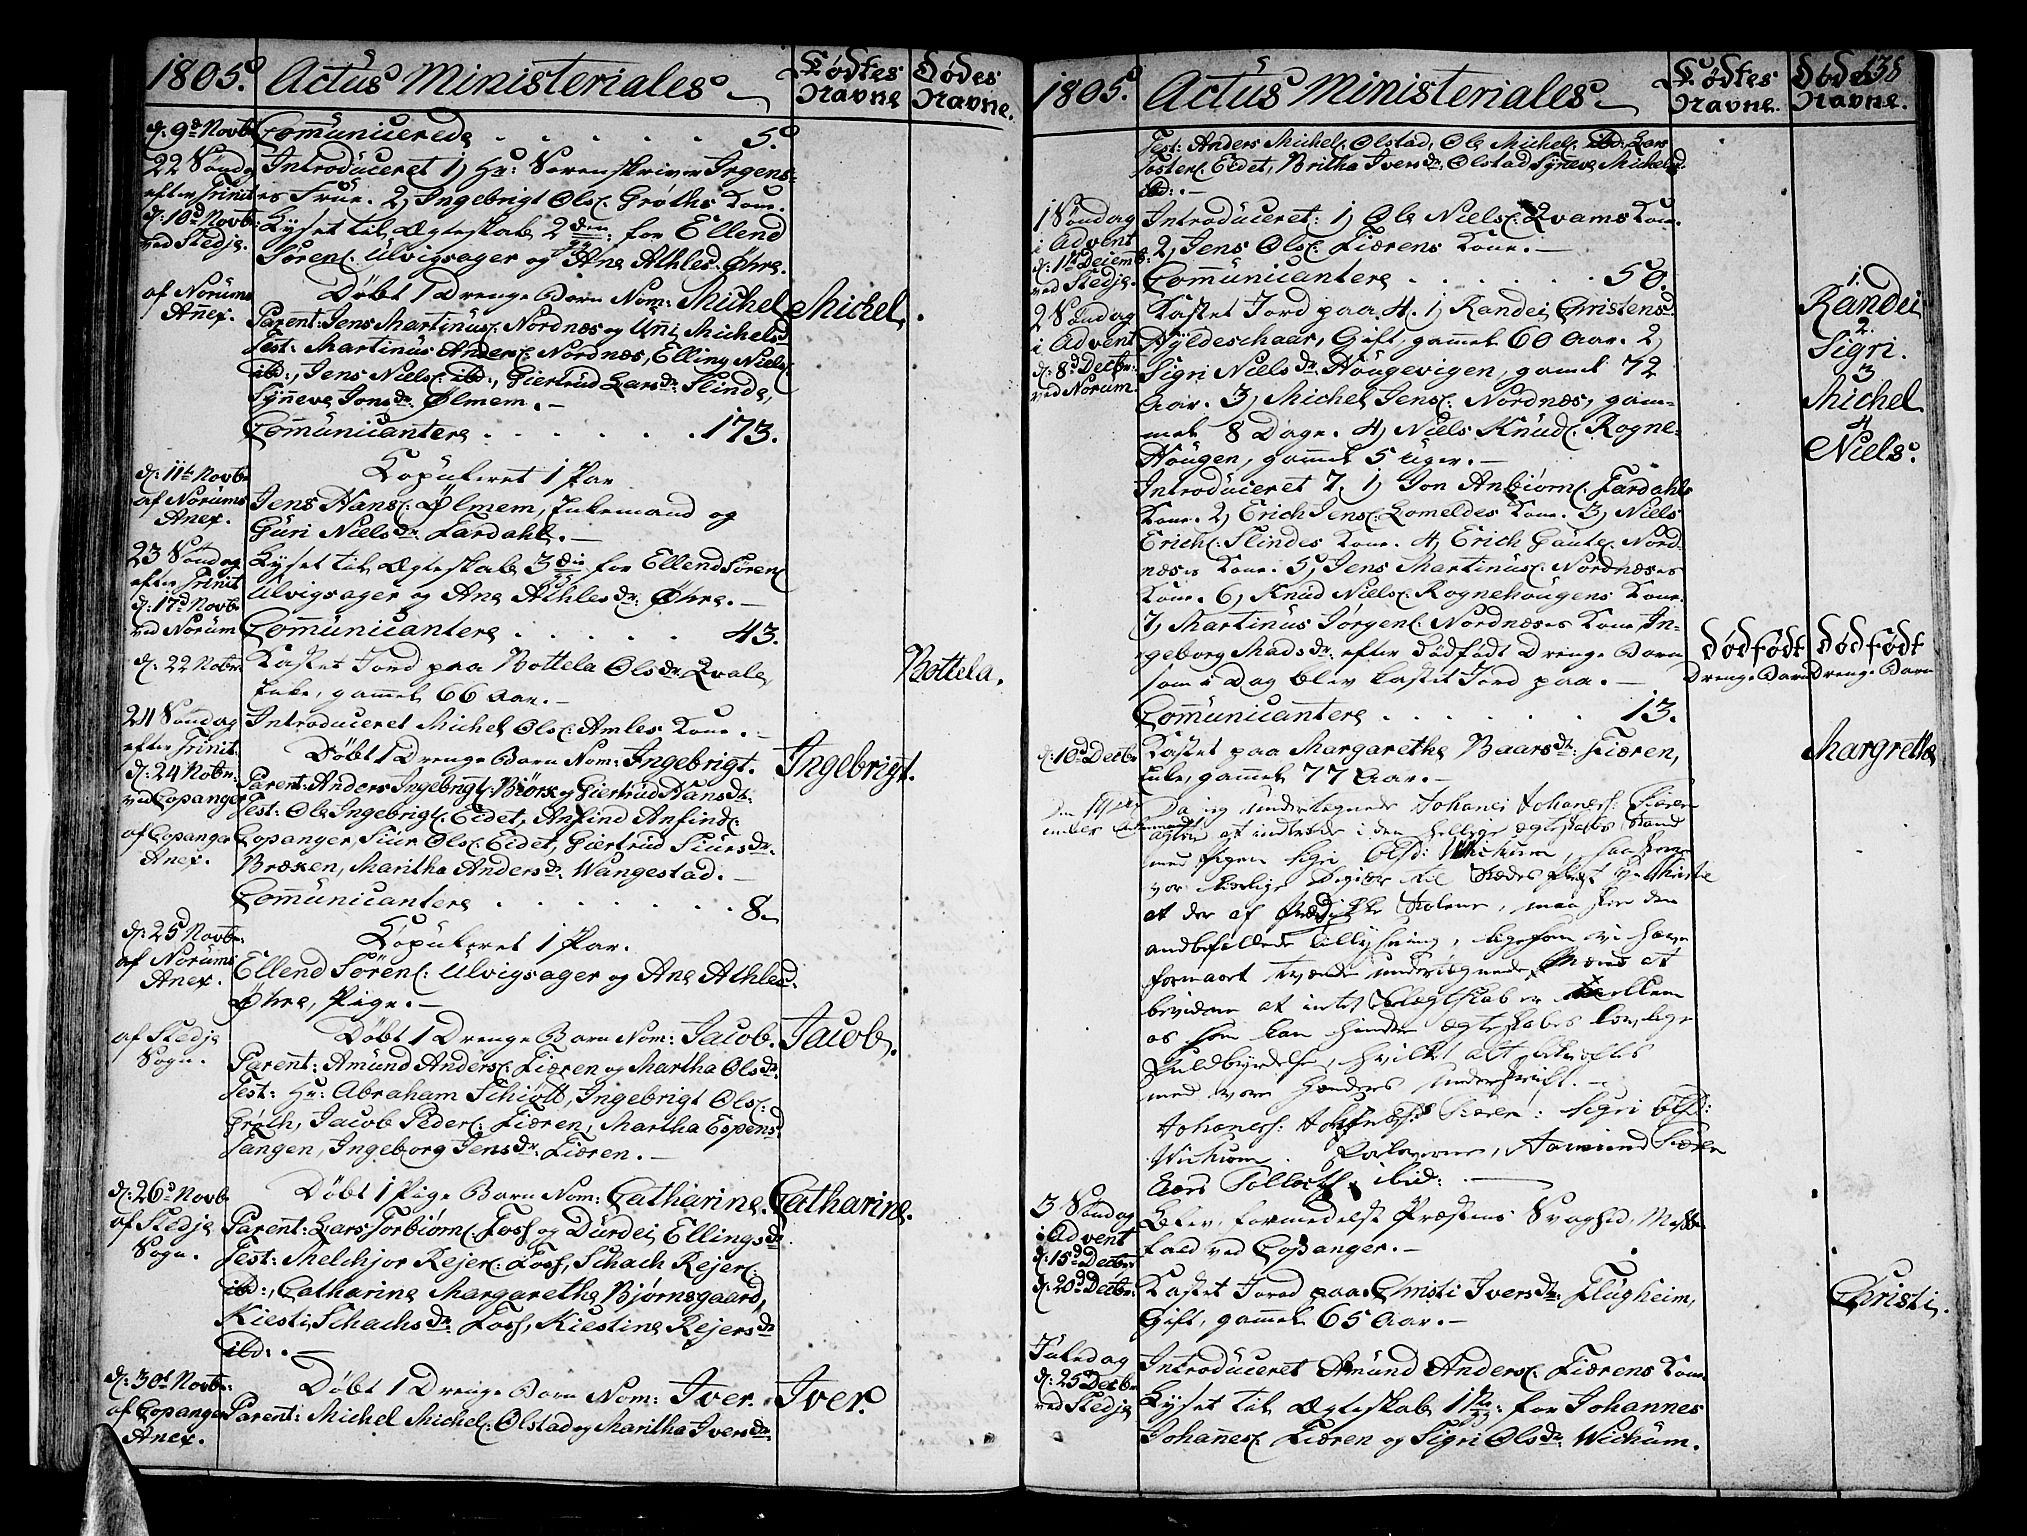 1805. Actus Ministeriales. Fødtes Navne Dødes Navne.
d: 9d Novbr Communicerede . . . . . . 5.
22 Søndag Introduceret 1) Hr: Sorenskriver Irgens=
efter Trinit es Frue. 2) Ingebrigt Ols: Grøths Kone.
d: 10d Novbr. Lyset til Ægteskab 2den: for Ellend
ved Stedje Søren: Ulvigsager og Ane Athlesd. Øhre.
af Norums Døbt 1 Drenge Barn Nom: Michel Michel.
Anex. Parent: Jens Martinus: Nordnæs og Unni Michelsd
Test: Martinus Anders: Nordnæs, Elling Niels:
ibd:, Jens Niels: ibd:, Giertrud Larsdr: Slinde,
Synneve Jonsdr: Ølmem. –
Communicantere . . . . . . 173.
d: 11te Novbr Copuleret 1 Par
af Norums Jens Hans: Ølmem, Enkemand og
Anex. Guri Nielsdr. Fardahl. –
23 Søndag Lyset til Ægteskab 3die for Ellend Søren:
efter Trinit Ulvigsager og Ane Athlesdr: Øhre. –
d: 17d Novbr
ved Norum Communicantere . . . . . 43.
d: 22 Nobr. Kastet Jord paa Bottela Olsdr. Qvale, Bottela.
Enke, gammel 66 Aar. –
24 Søndag Introduceret Michel Ols: Amles Kone. –
efter Trinit. Døbt 1 Drenge Barn Nom: Ingebrigt. Ingebrigt.
d: 24 Nobr: Parent: Anders Ingebrigt: Biørk og Giertrud Hansdr:
ved Copanger Test: Ole Ingebrigt: Eidet, Anfind Anfind:
af Copanger Copanger, Siur Ols: Eidet, Giertrud Siursdr.
Anex. Bræken, Maritha Andersdr: Wangestad. –
Communicantere . . . . . . . 8.
d: 25d Novbr: Copuleret 1 Par.
af Norums Ellend Søren: Ulvigsager og Ane Athlesd.
Anex. Øhre, Pige. –
af Stedje Døbt 1 Drenge Barn Nom: Jacob. Jacob.
Sogn. Parent: Amund Anders: Fiæren og Martha Olsdr.
Test: Hr: Abraham Schiøtt, Ingebrigt Ols:
Grøth, Jacob Peder: Fiæren, Martha Espensd.
Tangen, Ingeborg Jensdr: Fiæren. –
d: 26d Novbr Døbt 1 Pige Barn Nom: Catharine. Catharine.
af Stedje Parent: Lars Torbiørn: Foss og Durdei Ellingsdr
Sogn. Test: Melchjor Rejer: Foss, Schach Rejer:
ibd:, Catharine Margarethe Bjørnsgaard,
Kiesti Schachsdr: Foss, Kiestine Rejersdr
ibd:. –
d: 30t Novbr: Døbt 1 Drenge Barn Nom: Iver. Iver.
af Copanger Parent: Michel Michel: Olstad og Maritha Iversdr.
Anex.
1805. Actus Ministeriales. Fødtes Navne. Dødes Navne. 138
Test: Anders Michel: Olstad, Ole Michel: ibd: Lars
Toster: Eidet, Britha Iversdr: Olstad Synneve Michelsd
ibd: –
1 Søndag Introduceret: 1) Ole Niels: Qvams Kone.
i Advent 2) Jens Ols: Fiærens Kone. –
d: 1te Decemb:
ved Stedje. Communicantere . . . . . 50.
2 Søndag Kastet Jord paa 4. 1) Randei Christensd 1. Randei
i Advent Hyldeschaar, Gift, gammel 60 Aar. 2) 2. Sigri.
d: 8d Decbr: Sigri Nielsdr. Hougevigen, gamel 72
ved Norum. Aar. 3) Michel Jens: Nordnæs, gam= 3 Michel
mel 8 Dage. 4) Niels Knud: Rogne= 4 Niels.
Hougen, gammel 5 Uger. –
Introduceret 7. 1) Jon Anbiørn: Fardahls
Kone. 2) Erich Jens: Lomeldes Kone. 3) Niels
Erich: Slindes Kone. 4) Erich Gaute: Nord=
næses Kone. 5) Jens Martinus: Nordnæses
Kone. 6) Knud Niels: Rognehougens Kone.
7) Martinus Jørgen: Nordnæses Kone In=
geborg Madsdr. efter Dødfødt Drenge Barn Dødfødt Dødfødt
som i Dag blev kastet Jord paa. – Drenge Barn Drenge Barn
Communicantere . . . . . . 13.
d: 10d Decbr Kastet paa Margarethe Baarsdr: Fiæren, Margrethe
Enke, gammel 77 Aar. –
Da jeg undertegnede Johanes Johaness: Fiæren
agter at indtræde i den hellige Ægteskabs Stand
med Pigen Sigri Olsd: Wichum,
at der af Prædike Stolene, maa skee den
andbefallede tillysning, ligesom vi have
formaaet tvende undertegnede Mænd at
bevidne at intet Slægtskab er imellem
os som kan hindre Ægteskabets lovlige
Fuldbyrdelse, hvilket alt
med vore Hænders underskrift. –
Johaness: Fiæren: Sigri Olsd:
Wichum. Forloverne, Aamund Fiæren
ibid:
3 Søndag Blev, formedelst Præstens Svaghed, Messe
i Advent fald ved Copanger. –
d: 15d Decbr
d: 20d Decbr: Kastet Jord paa Christi Iversdr: Flugheim, Christi.
Gift, gammel 65 Aar. –
Juledag Introduceret Amund Anders: Fiærens Kone
d: 25 Decbr Lyset til Ægteskab 1ste: for Johannes
ved Stedje Johannes: Fiæren og Sigri Olsdr. Wichum.